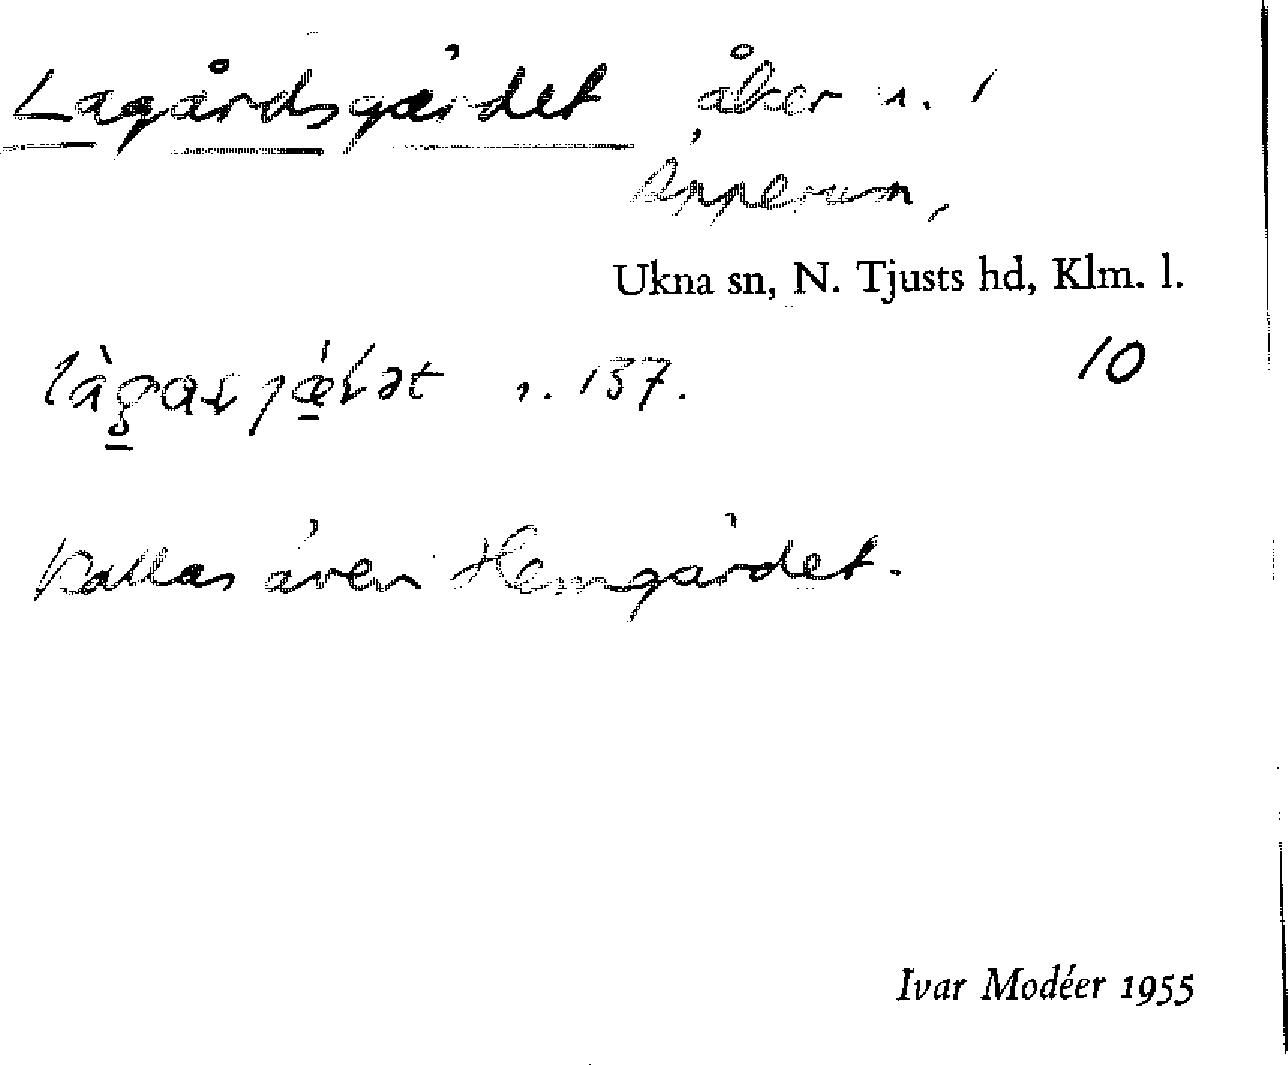 Lagårdsgärdet åker n. 1
Änperum,
Ukna sn, N. Tjusts hd, Klm. l.
10
n. 137.
Kallas även Hemgärdet.
Ivar Modéer 1955